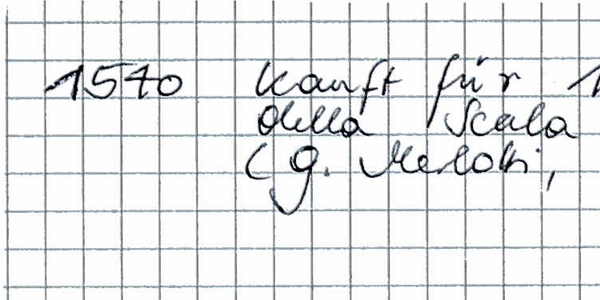 1540 kauft für 1
della Scala
(g. Merlotti,